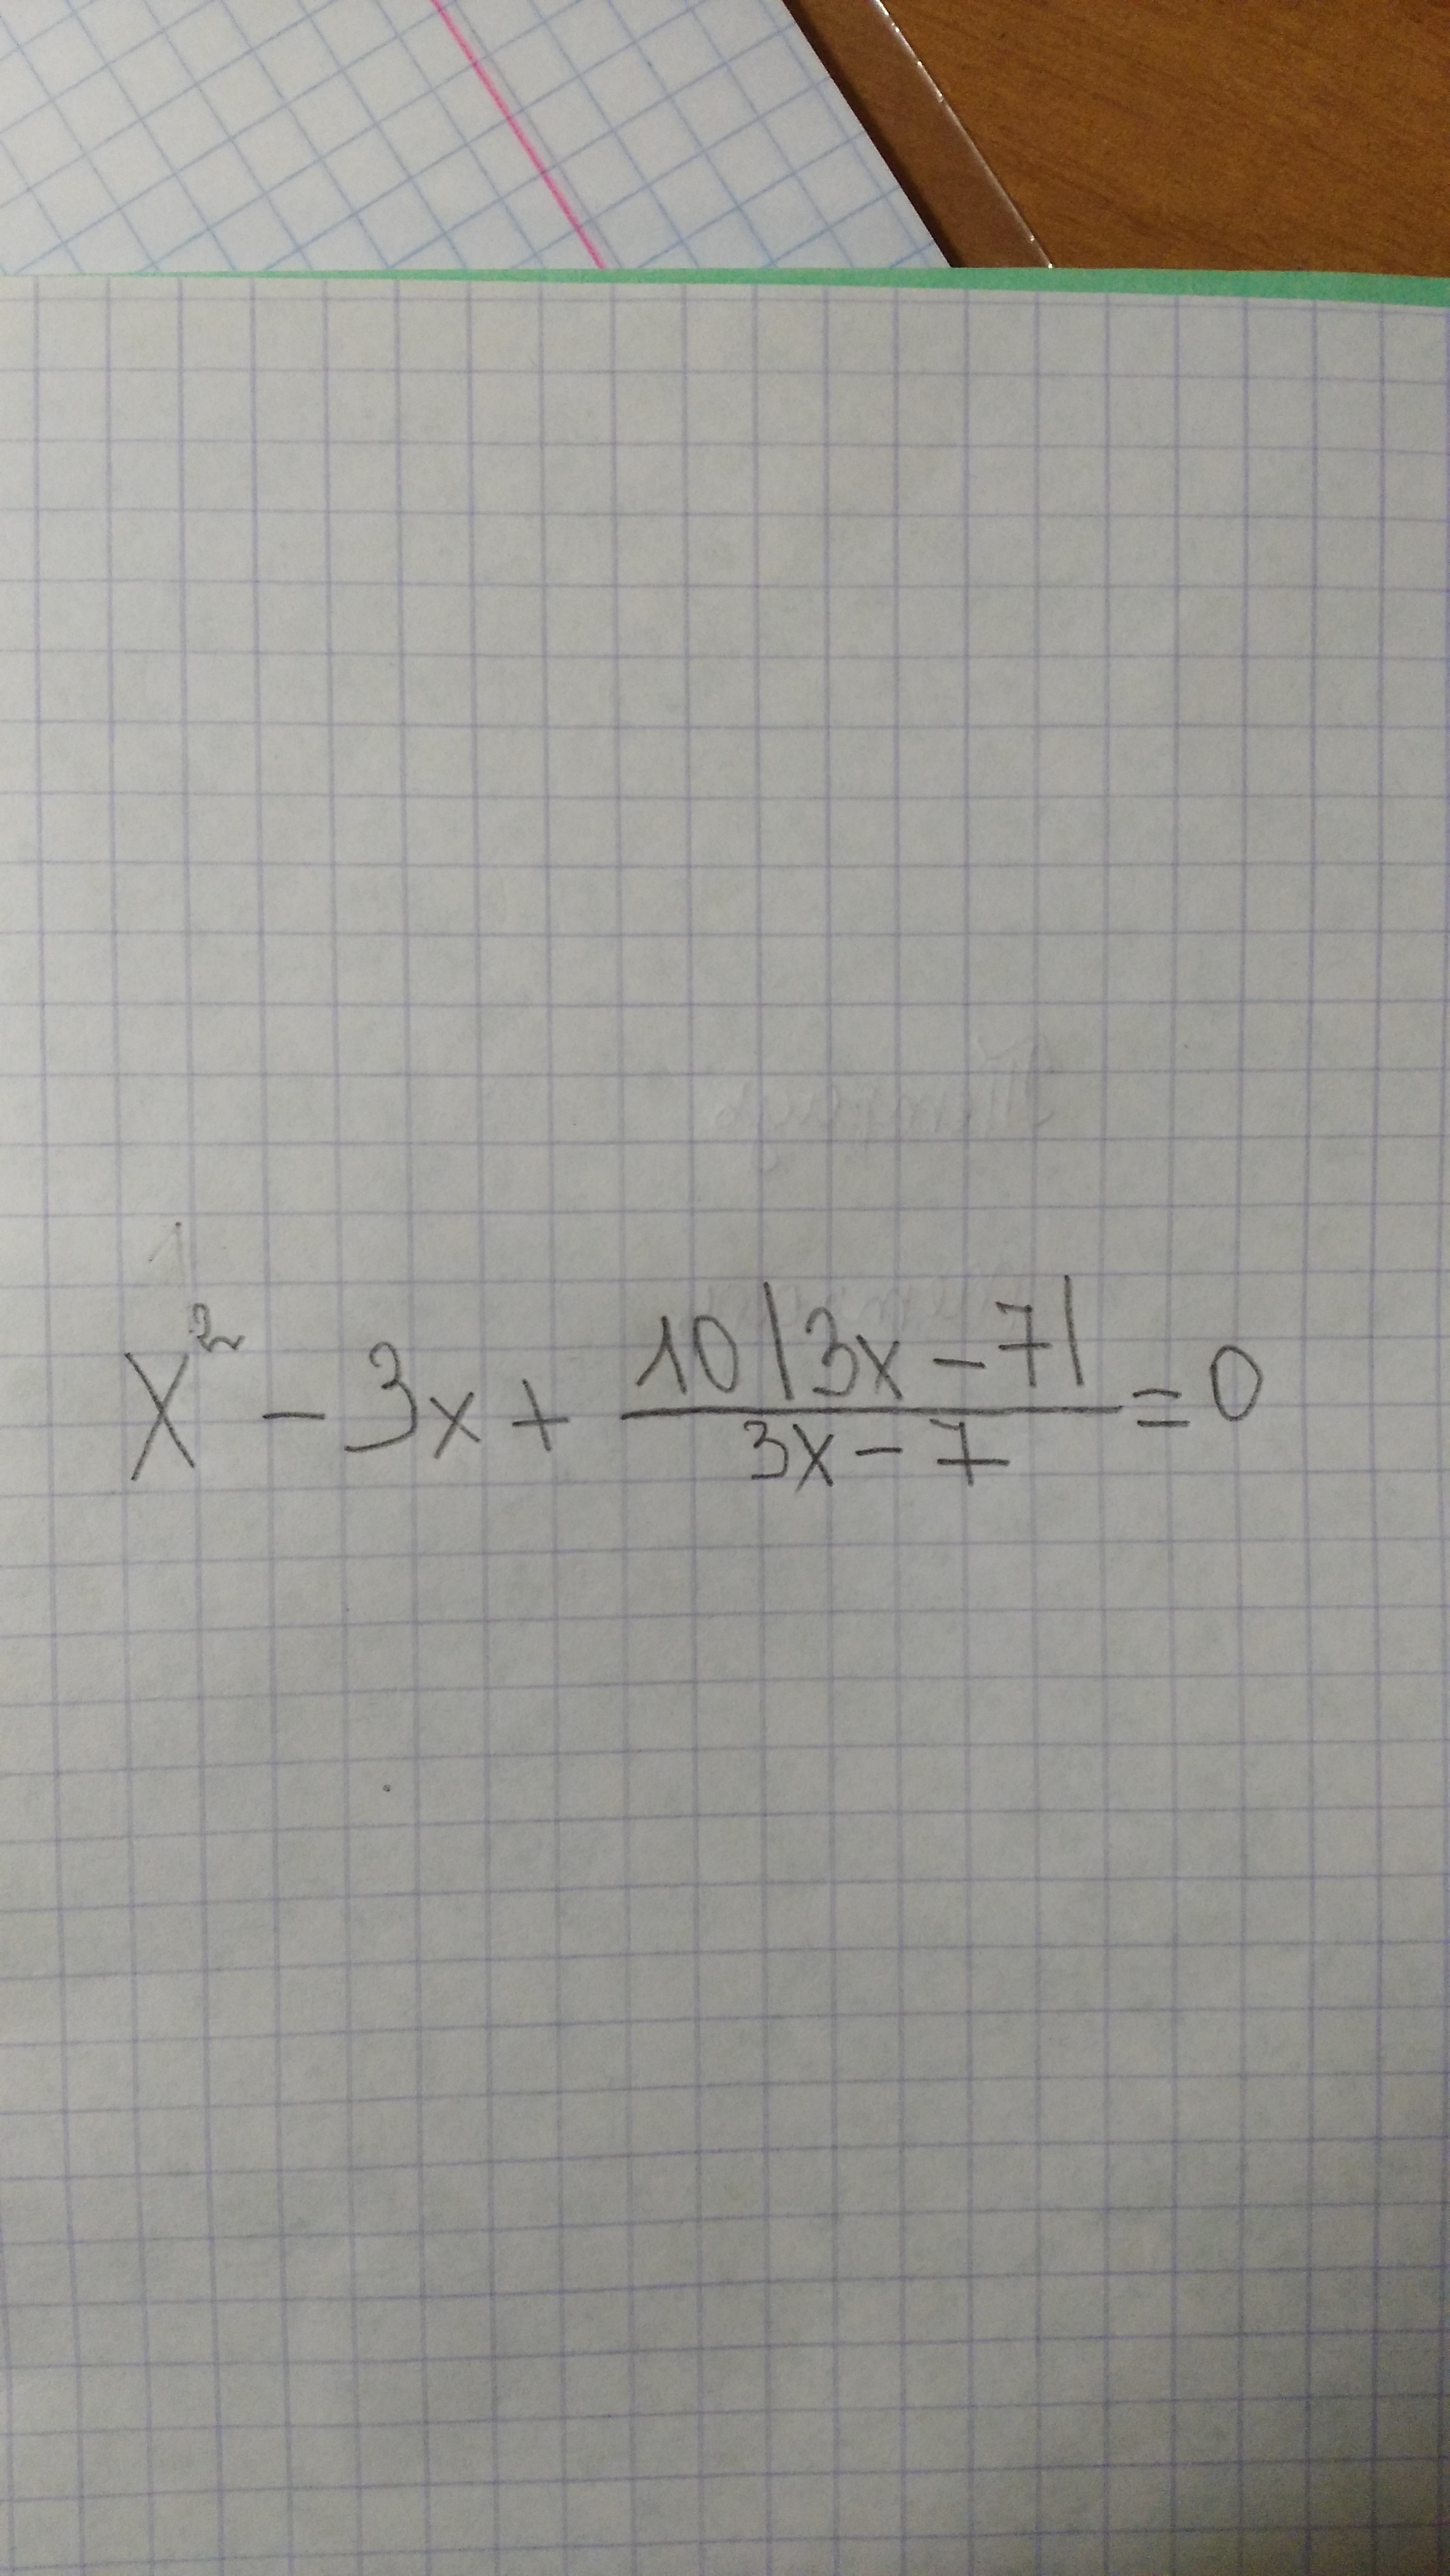 x² - 3x + \frac{10|3x - 7|}{3x - 7} = 0